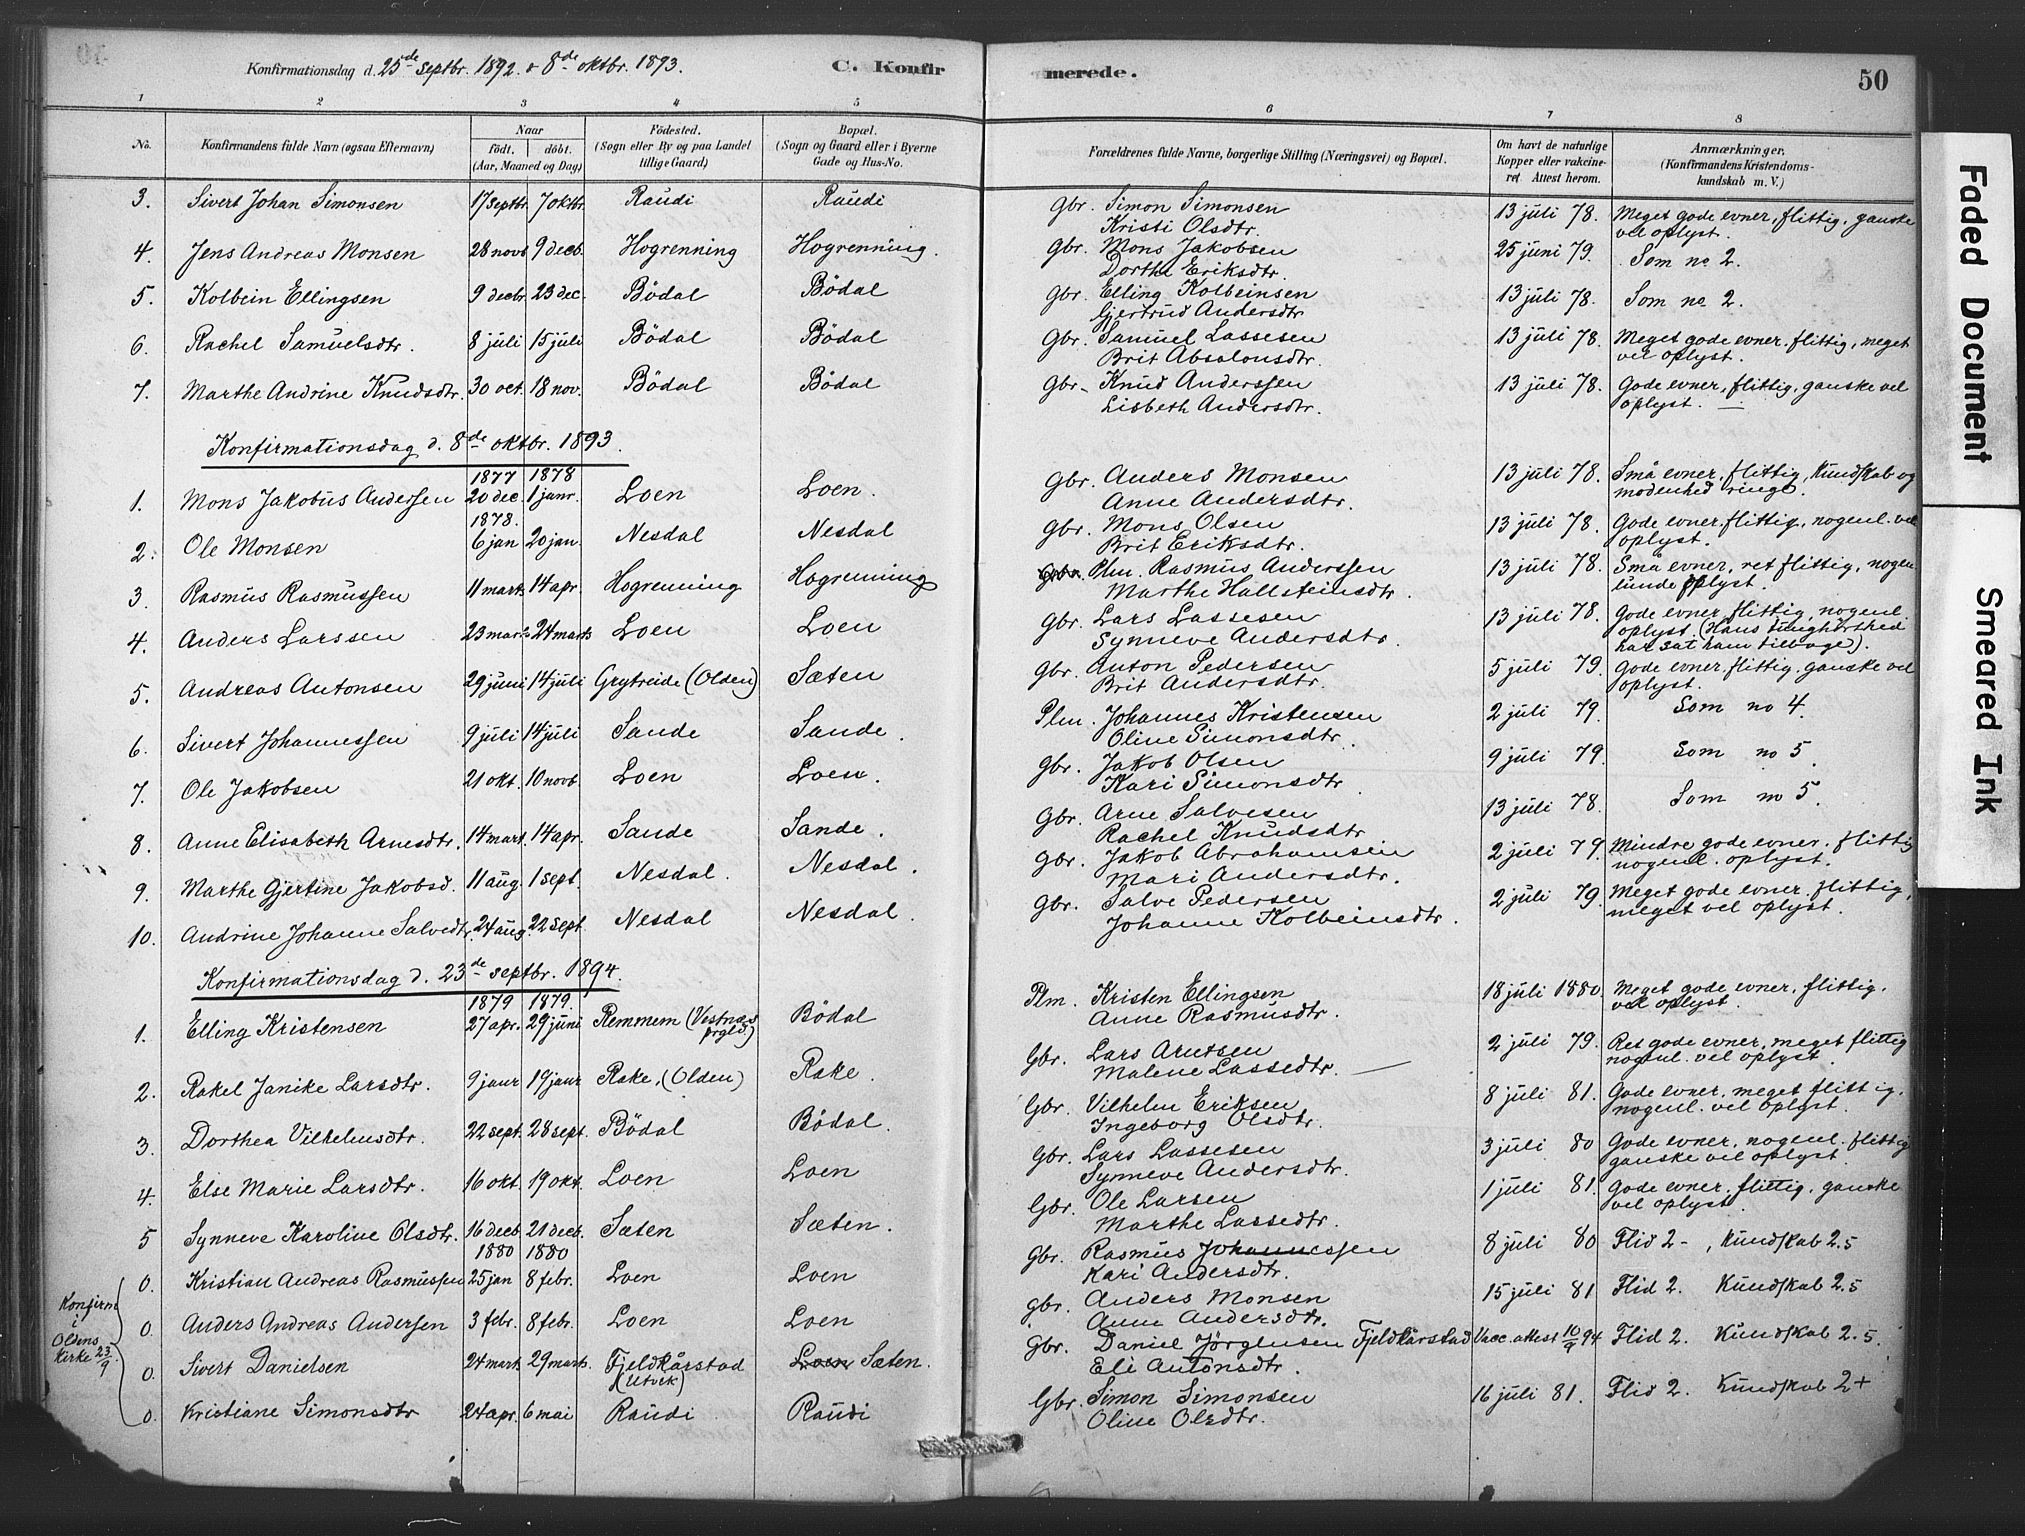 Konfirmationsdag d. 25de septbr. 1892. o 8de oktbr. 1893. C. Konfirmerede. 50
1 2 3 4 5 6 7 8
No. Konfirmandens fulde Navn (ogsaa Efternavn) Naar födt. döbt. (Aar, Maaned og Dag) Födested. (Sogn eller By og paa Landet tillige Gaard) Bopæl. (Sogn og Gaard eller i Byerne Gade og Hus-No. Forældrenes fulde Navne, borgerlige Stilling (Næringsvei) og Bopæl. Om havt de naturlige Kopper eller vakcineret. Attest herom. Anmærkninger. (Konfirmandens Kristendomskundskab m. V.)
3. Sivert Johan Simonsen 17 septbr. 7 oktbr. Raudi Raudi Gbr. Simon Simonsen 13 juli 78. Meget gode evner, flittig, ganske
Kristi Olsdtr. vel oplyst.
4. Jens Andreas Monsen 28 novb 9 decb. Hogrenning Hogrenning. Gbr. Mons Jakobsen 25 juni 79. Som no 2.
Dorthe Eriksdtr.
5. Kolbein Ellingsen 9 decbr. 23 dec. Bödal Bödal Gbr. Elling Kolbeinsen 13 juli 78. Som no 2.
Gjertrud Andersdtr
6. Rachel Samuelsdtr. 8 juli 15 juli Bödal Bödal Gbr. Samuel Lassesen 13 juli 78. Meget gode evner. flittig, meget
Brit Absalonsdtr. vel oplyst.
7. Marthe Andrine Knudsdtr. 30 oct. 18 nov. Bödal Bödal Gbr. Knud Anderssen 13 juli 78. Gode evner, flittig, ganske vel
Lisbeth Andersdtr. oplyst.
Konfirmationsdag d. 8de oktbr. 1893.
1877 1878
1. Mons Jakobus Andersen 20 dec. 1 janr. Loen Loen. Gbr. Anders Monsen 13 juli 78. Små evner, flittig, kundskab og
Anne Andersdtr. modenhed ringe.
1878.
2. Ole Monsen 6 jan 20 jan. Nesdal Nesdal Gbr. Mons Olsen 13 juli 78. Gode evner, flittig, nogenl. vel
Brit Eriksdtr. oplyst.
3. Rasmus Rasmussen 11 mart. 14 apr. Hogrenning Hogrenning Gbr. Plm. Rasmus Anderssen 13 juli 78. Små evner, ret flittig, nogen
Marthe Hallsteinsdtr. lunde oplyst.
4. Anders Larssen 23 marts 24 marts Loen Loen Gbr. Lars Lassesen 13 juli 78. Gode evner, flittig, nogenl.
Synneve Andersdtr. oplyst. (Hans tunghørthed
har sat ham tilbage).
5. Andreas Antonsen 29 juni 14 juli Grytreide (Olden) Sæten Gbr. Anton Pedersen 5 juli 79. Gode evner, flittig, ganske vel
Brit Andersdtr. oplyst.
6. Sivert Johannessen 9 juli 14 juli Sande Sande. Plm. Johannes Kristensen 2 juli 79. Som no 4.
Oline Simonsdtr.
7. Ole Jakobsen 21 okt. 10 novb. Loen Loen. Gbr. Jakob Olsen 9 juli 79. Som no 5.
Kari Simonsdtr.
8. Anne Elisabeth Arnesdtr. 14 mart. 14 apr. Sande Sande. Gbr. Arne Salvesen 13 juli 78. Som no 5.
Rachel Knudsdtr
9. Marthe Gjertine Jakobsd. 11 aug. 1 sept. Nesdal. Nesdal. Gbr. Jakob Abrahamsen 2 juli 79. Mindre gode evner. flittig
Mari Andersdtr. nogenl. oplyst.
10. Andrine Johanne Salvedtr. 24 aug. 22 sept. Nesdal Nesdal. Gbr. Salve Pedersen 2 juli 79. Meget gode evner. flittig,
Johanne Kolbeinsdtr. meget vel oplyst.
Konfirmationsdag d. 23de septbr. 1894.
1879 1879.
1. Elling Kristensen 27 apr. 29 juni Remmem (Vestnæs prgld.) Bödal Plm. Kristen Ellingsen 18 juli 1880. Meget gode evner, flittig.
Anne Rasmusdtr. vel oplyst.
2. Rakel Janike Larsdtr. 9 janr 19 janr Rake, (Olden) Rake. Gbr. Lars Arntsen 2 juli 79. Ret gode evner, meget flittig
Malene Lassedtr. nogenl. vel oplyst.
3. Dorthea Vilhelmsdtr. 22 sept. 28 sept. Bödal Bödal. Gbr. Vilhelm Eriksen 8 juli 81. Gode evner, meget flittig.
Ingeborg Olsdtr. nogenl. vel oplyst.
4. Else Marie Larsdtr. 16 okt. 19 okt. Loen Loen Gbr. Lars Lassesen 3 juli 80 Gode evner, nogenl. flittig
Synneve Andersdtr. ganske vel oplyst.
5 Synneve Karoline Olsdtr. 16 decb. 21 decb. Sæten Sæten. Gbr. Ole Larsen 1 juli 81. Gode evner, flittig, ganske
Marthe Lassedtr. vel oplyst.
1880 1880
0. Kristian Andreas Rasmussen 25 jan 8 febr. Loen Loen Gbr. Rasmus Johannessen 8 juli 80 Flid 2 -, Kundskab 2.5
Kari Andersdtr.
Konfirm i Oldens Kirke 23/9
0. Anders Andreas Andersen 3 febr. 8 febr. Loen Loen gbr. Anders Monsen 15 juli 81 Flid 2. Kundskab 2.5
Anne Andersdtr.
0. Sivert Danielsen 24 mart. 29 marts Fjeldkårstad (Utvik) Loen Sæten. Gbr. Daniel Jörgensen Fjeldkårstad Vacc. attest 10/9 94 Flid 2. Kundskab 2.5.
Eli Antonsdtr.
0. Kristiane Simonsdtr 24 apr. 6 mai Raudi Raudi Gbr. Simon Simonsen 16 juli 81. Flid 2. Kundskab 2+
Oline Olsdtr.
Faded Document
Smeared Ink